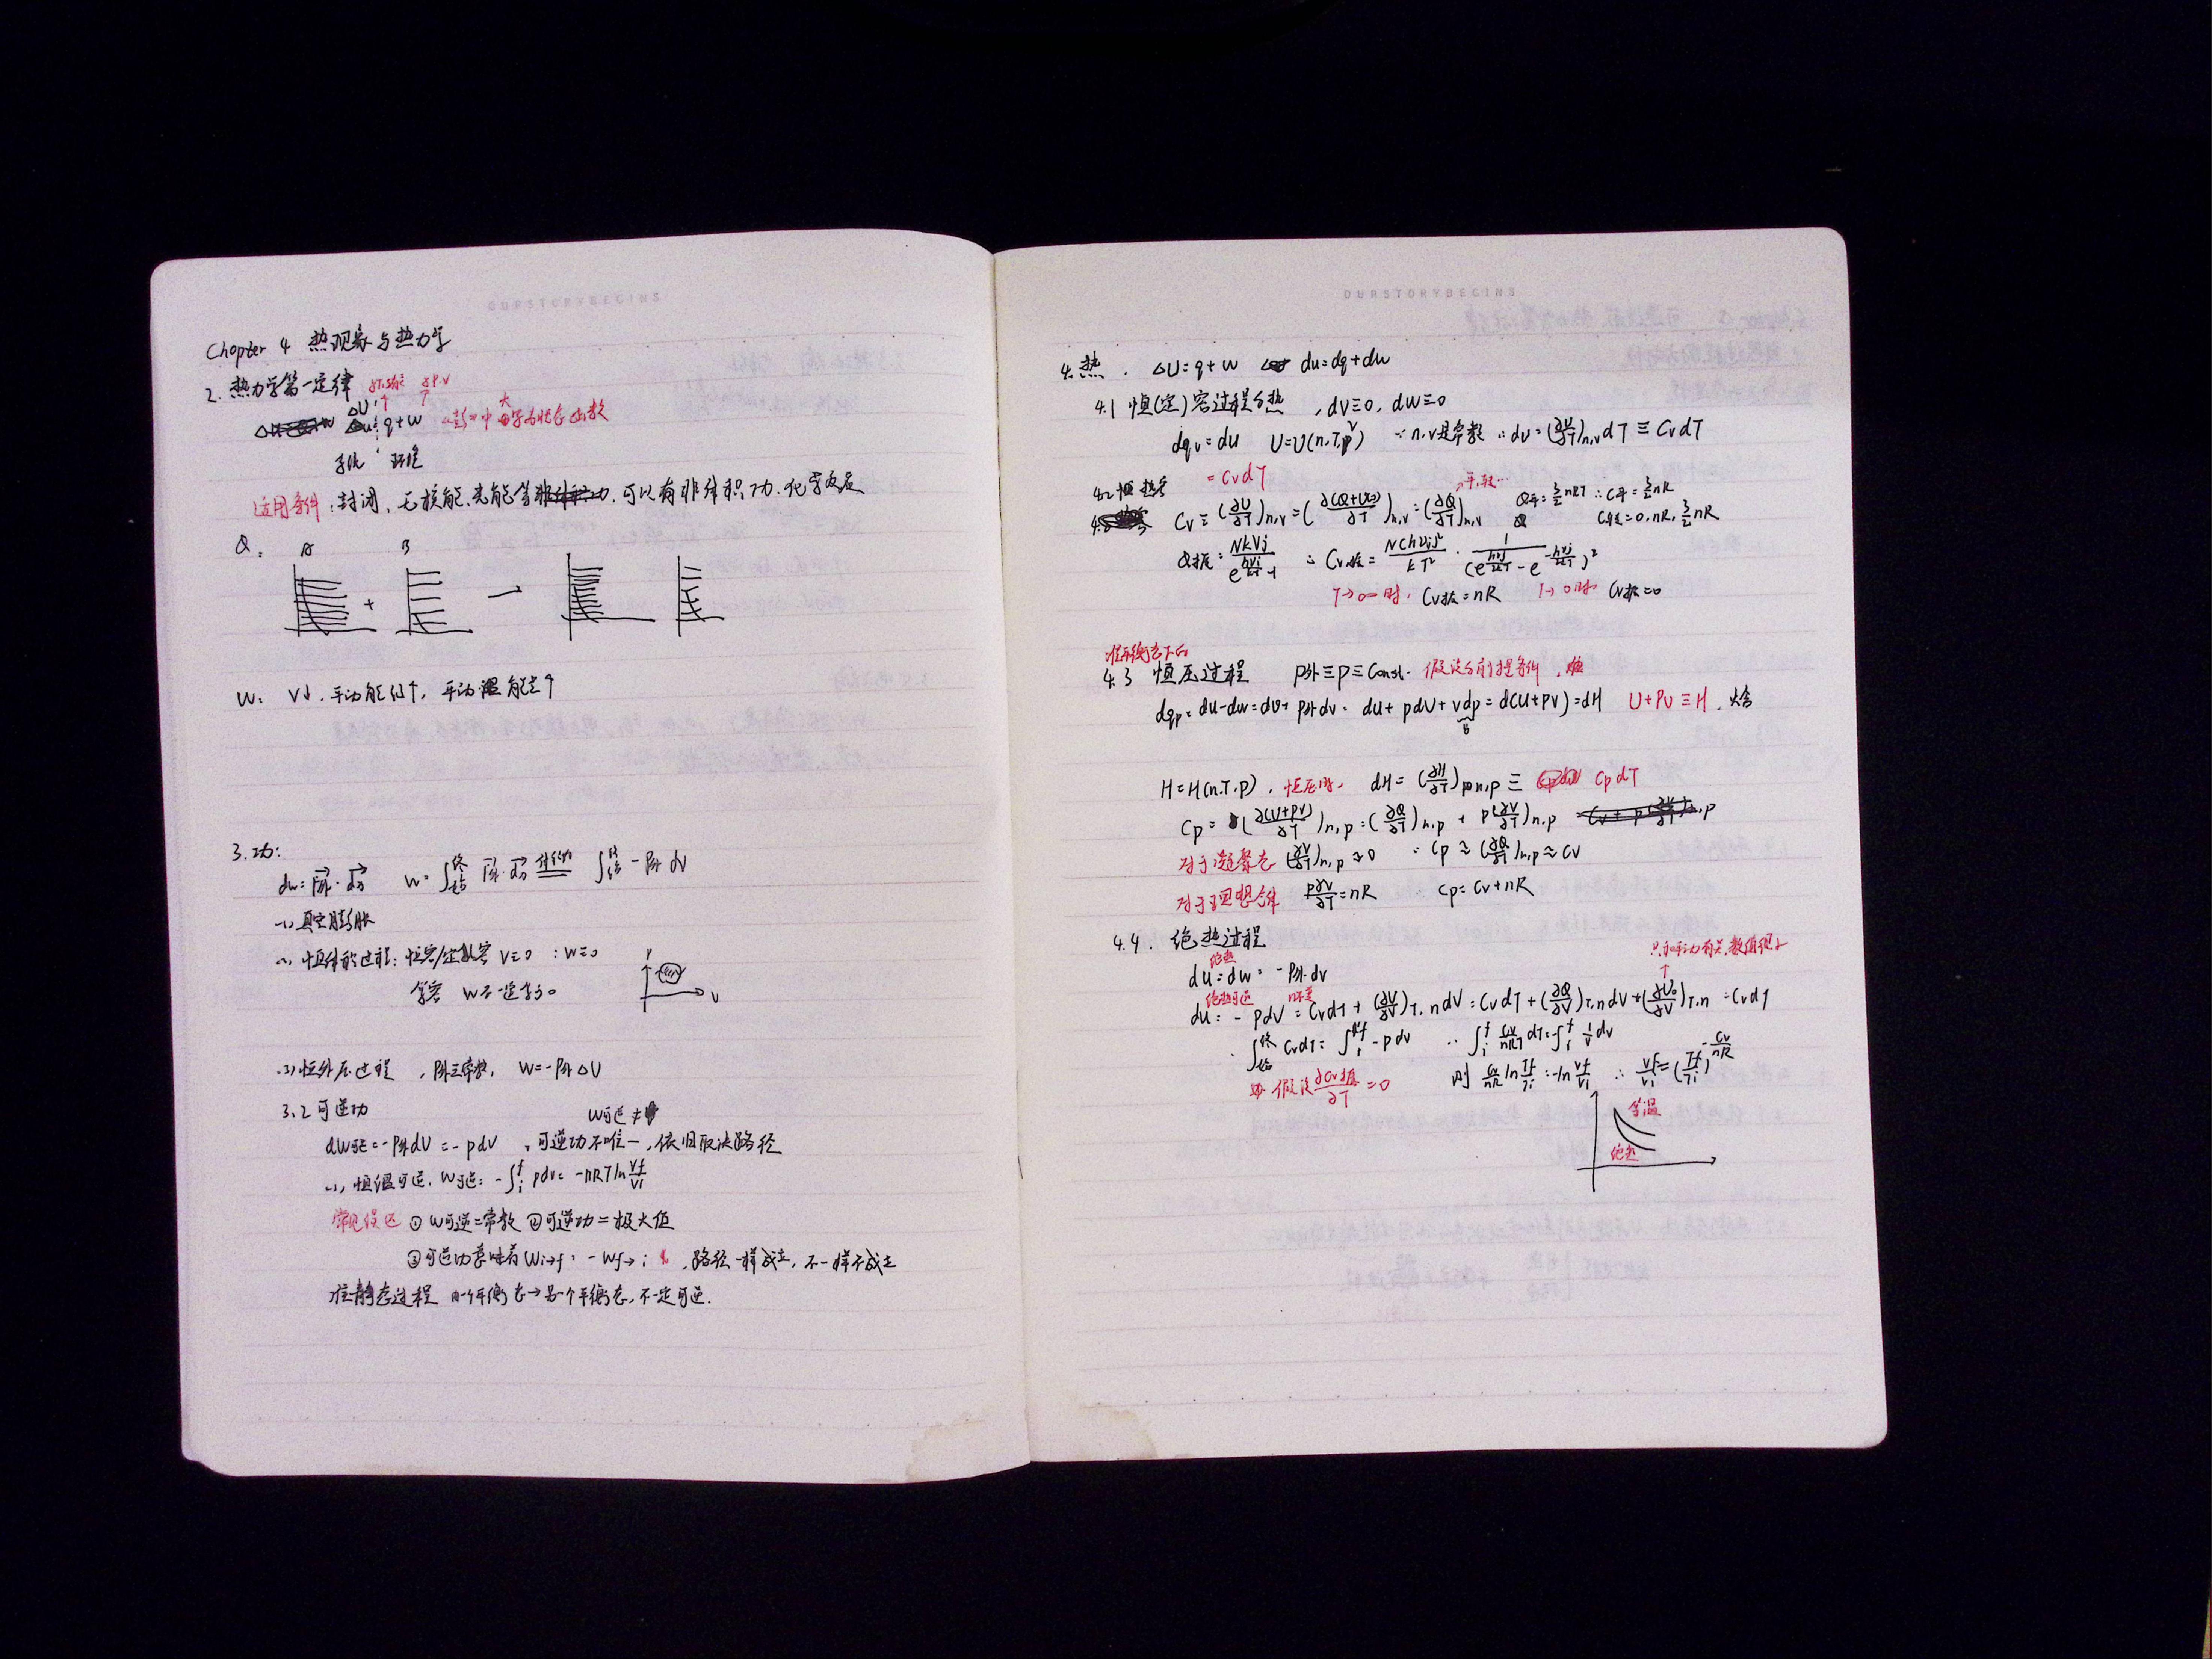 OURSTORYBEGINS
Chapter 4 热现象与热力学
2. 热力学第一定律
ΔU = q+w 书中大写为状态函数
系统 环境
适用条件:封闭、无核能、光能等,可以有非体积功、化学反应
Q: A B
+ →
W: V↓, 平动能级↑, 平动能↑
3. 功:
dw = F外·ds W = ∫始终 F外·ds 体积功 ∫始终 -P外 dV
(1) 真空膨胀
(2) 恒体积过程: 恒容/定容 V≡0 ∴ W≡0
等容 W不一定等于0
P V
(3) 恒外压过程, P外≡常数, W=-P外ΔV
3.2 可逆功
dW可逆=-P外dV=-pdV, 可逆功不唯一, 依旧取决路径
(1) 恒温可逆, W可逆= -∫i f pdv= -nRT ln Vf/Vi
常见误区 ① W可逆=常数 ②可逆功=极大值
③可逆功意味着Wi→f = -Wf→i, 路径一样成立, 不一样不成立
准静态过程 由一个平衡态→另一个平衡态, 不一定可逆.
OURSTORYBEGINS
4. 热. ΔU=q+w du=dq+dw
4.1 恒(定)容过程的热, dV≡0, dW≡0
dqv=du U=U(n,T,V) ∵n,v是常数 ∴dU=(∂U/∂T)n,v dT ≡ CvdT
=CvdT
4.2 恒容热容
Cv≡(∂U/∂T)n,v=(∂(Q+U0)/∂T)n,v=(∂Q/∂T)n,v Q平=3/2 nRT ∴C平=3/2 nR
C转=0, nR, 3/2 nR
T→∞时, Cv振=nR T→0时 Cv振=0
准平衡态下的
4.3 恒压过程 p外≡p≡Const. 假设的前提条件
dqp=du-dw=du+p外dv=du+pdv+vdp=d(U+pv)=dH U+PV≡H, 焓
0
H=H(n,T,p), 恒压时, dH=(∂H/∂T)n,p ≡ CpdT
Cp=(∂(U+pV)/∂T)n,p=(∂Q/∂T)n,p + p(∂V/∂T)n,p
对于凝聚态 (∂V/∂T)n,p≈0 ∴Cp≈(∂Q/∂T)n,p≈Cv
对于理想气体 p∂V/∂T=nR ∴Cp=Cv+nR
4.4. 绝热过程
绝热
du=dw=-P外·dv
绝热可逆 n不变
du=-pdV=CvdT+(∂U/∂V)T,n dV=CvdT+(∂Q/∂V)T,n dV+(∂U0/∂V)T,n=CvdT
∴∫始终 CvdT=∫i f -pdv ∴∫i f Cv/nRT dT=-∫i f 1/v dv
假设 ∂Cv振/∂T=0 则 Cv/nR ln Tf/Ti=-ln Vf/Vi ∴Vf/Vi=(Tf/Ti)^-Cv/nR
等温
绝热